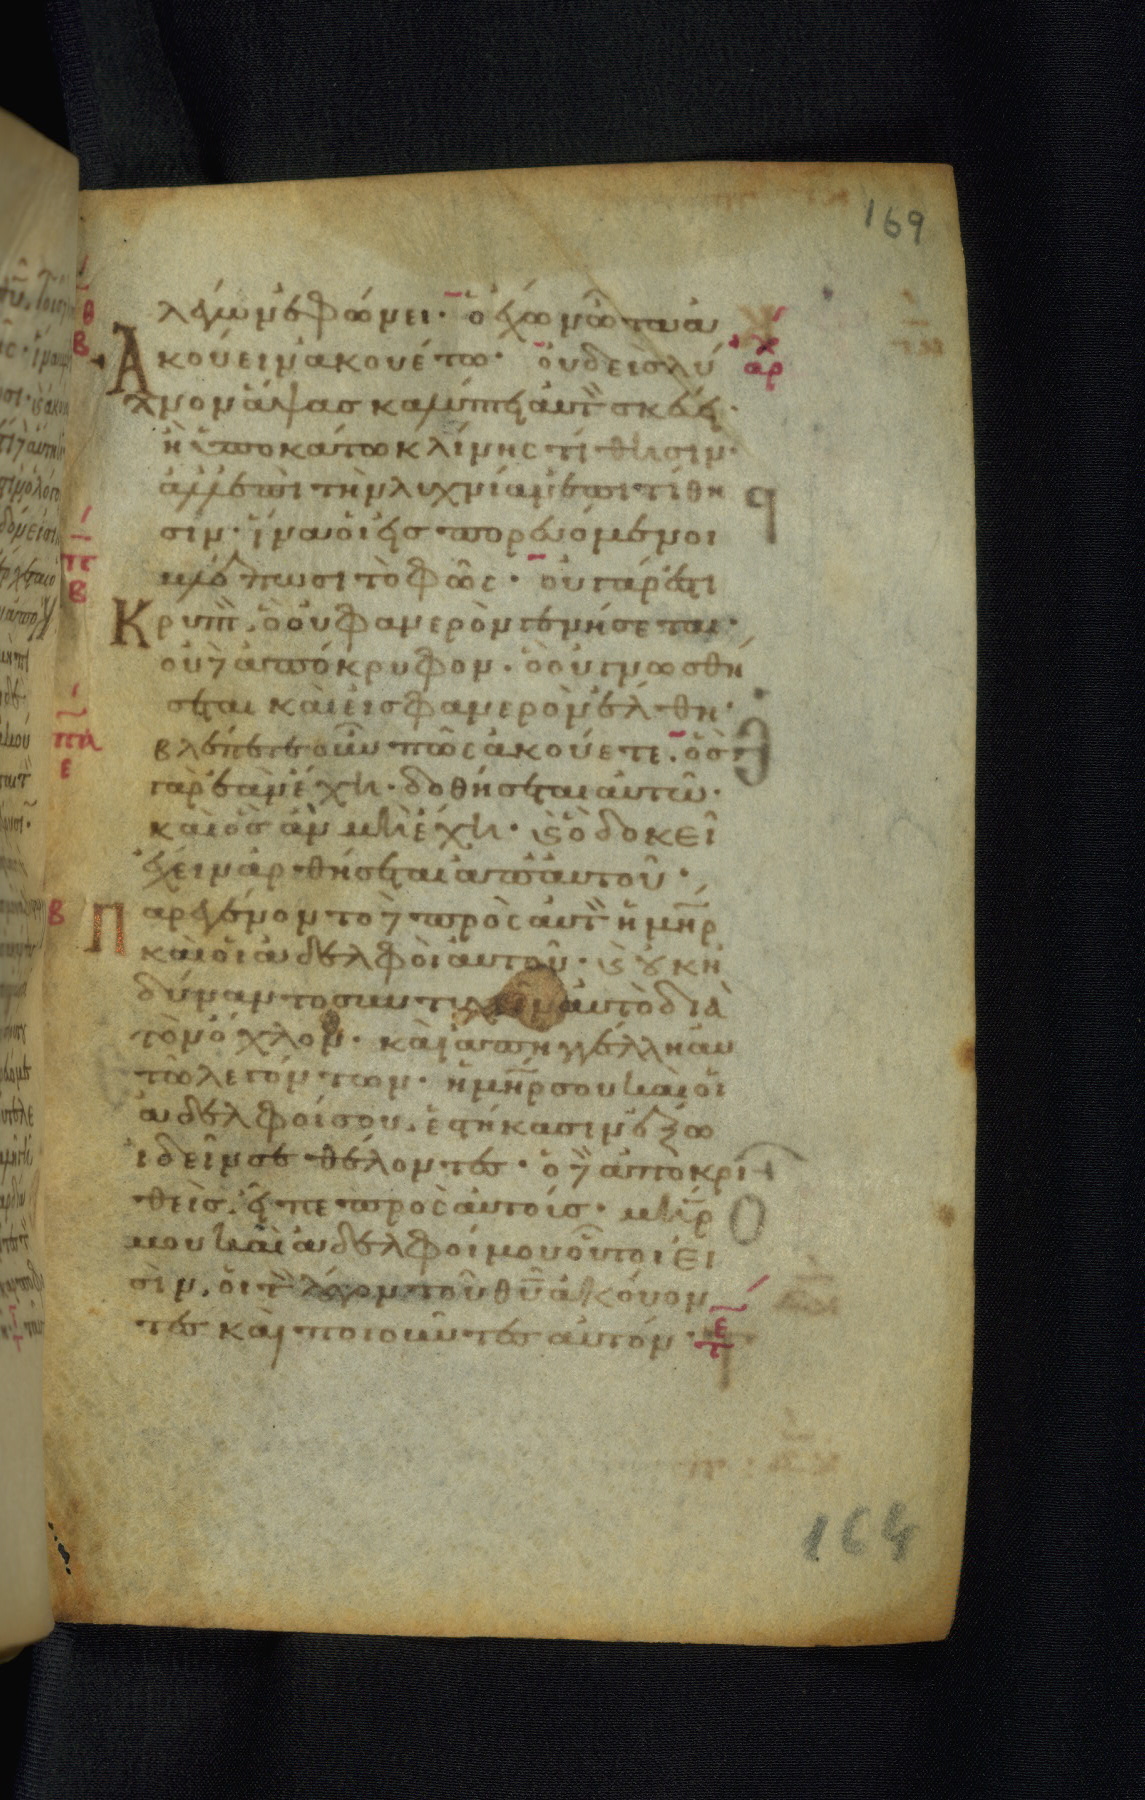 169
λέγων ἐφώνει· ὁ ἔχων ὦτα ἀ
κούειν ἀκουέτω· οὐδεὶς λύ
χνον ἅψας καλύπτει αὐτ σκεύει·
ἢ ὑποκάτω κλίνης τίθησιν·
ἀλλ ἐπὶ τὴν λυχνίαν ἐπιτίθη
σιν· ἵνα οἱ εἰσπορευόμενοι
βλέπωσι τὸ φῶς· οὐ γάρ ἐστι
Κρυπτ, ὃ οὐ φανερὸν γενήσεται·
οὐδ ἀπόκρυφον· ὃ οὐ γνωσθή
σεται καὶ εἰς φανερὸν ἔλθη·
βλέπετε οὖν πῶς ἀκούετε· ὃς
γὰρ ἐὰν ἔχη· δοθήσεται αὐτῶ·
καὶ ὃς ἂν μὴ ἔχη· κ ὃ δοκεῖ
ἔχειν ἀρθήσεται ἀπ αὐτοῦ·
Παρεγένοντο δ πρὸς αὐτ ἡ μηρ
καὶ οἱ ἀδελφοὶ αὐτοῦ· κ οὐκ ἠ
δύναντο συντυχεῖν αὐτὸ διὰ
τὸν ὄχλον· καὶ ἀπηγγέλλη αὐ
τῶ λεγόντων· ἡ μηρ σου καὶ οἱ
ἀδελφοί σου, ἑστήκασιν ἔξω
ἰδεῖν σε θέλοντες· ὁ δ ἀποκρι
θεὶς, εἶπε πρὸς αὐτοίς· μηρ
μου καὶ ἀδελφοί μου οὗτοι εἰ
σὶν, οἱ τ λόγον τοῦ θυ ἀκούον
τες καὶ ποιοῦντες αὐτόν·
164